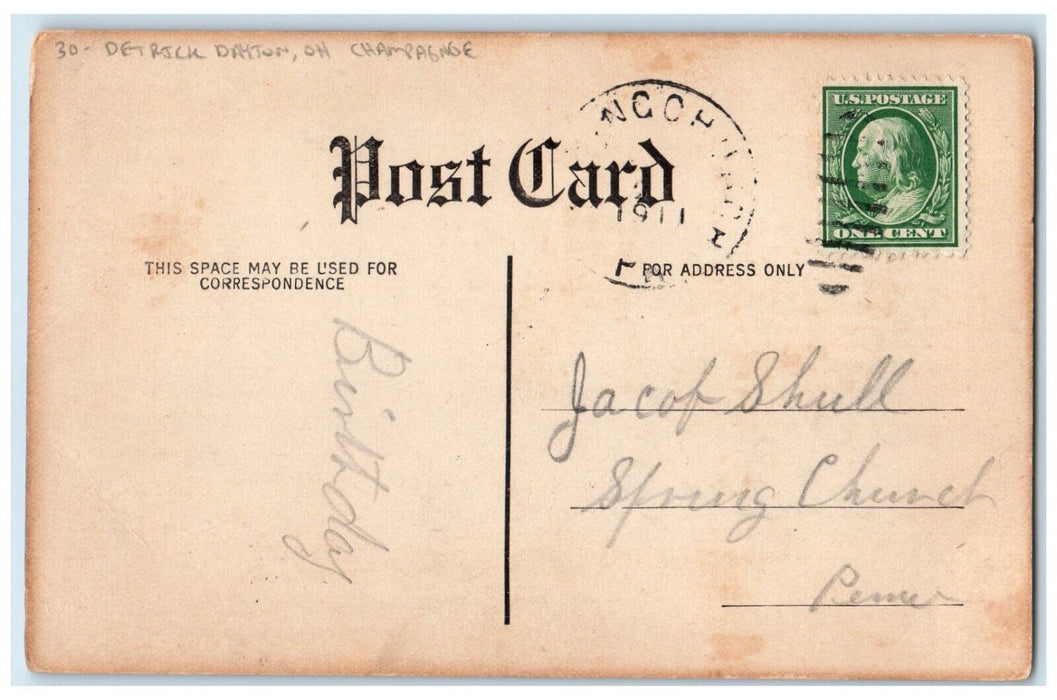 30- DETRICK DAYTON, OH CHAMPAGNOE
Post Card
NGCHURCH
1911
PA
U.S. POSTAGE
ONE CENT
THIS SPACE MAY BE USED FOR
CORRESPONDENCE
FOR ADDRESS ONLY
Birthday
Jacob Shull
Spring Church
Penna